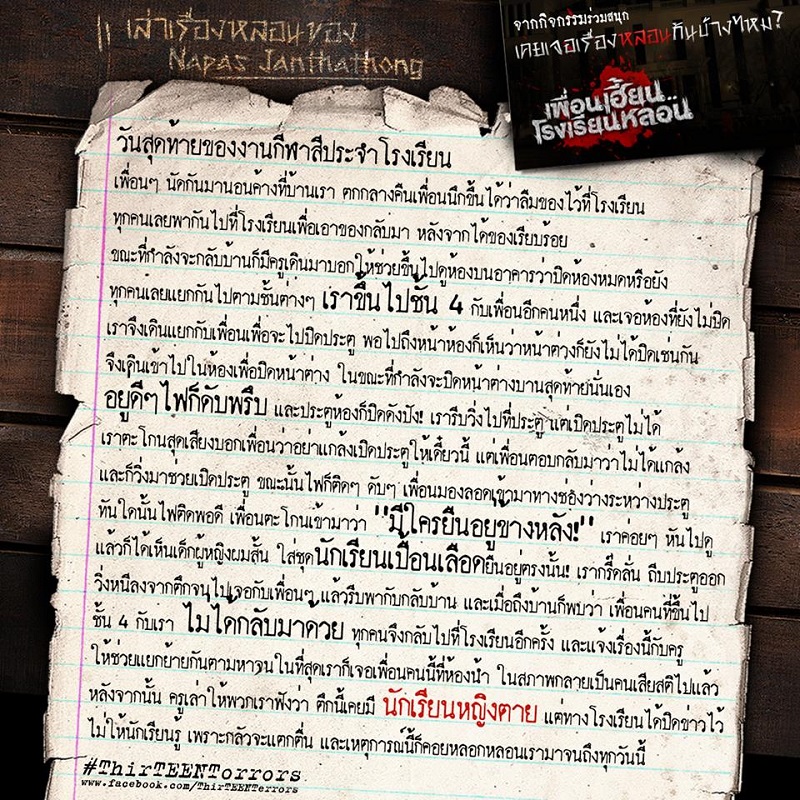 เล่าเรื่องหลอนของ
Napas Janthathong
จากกิจกรรมร่วมสนุก
เคยเจอเรื่องหลอนกันบ้างไหม?
เพื่อนเฮี้ยน..
โรงเรียนหลอน
วันสุดท้ายของงานกีฬาสีประจำโรงเรียน
เพื่อนๆ นัดกันมานอนค้างที่บ้านเรา ตกกลางคืนเพื่อนนึกขึ้นได้ว่าลืมของไว้ที่โรงเรียน
ทุกคนเลยพากันไปที่โรงเรียนเพื่อเอาของกลับมา หลังจากได้ของเรียบร้อย
ขณะที่กำลังจะกลับบ้านก็มีครูเดินมาบอกให้ช่วยขึ้นไปดูห้องบนอาคารว่าปิดห้องหมดหรือยัง
ทุกคนเลยแยกกันไปตามชั้นต่างๆ เราขึ้นไปชั้น 4 กับเพื่อนอีกคนหนึ่ง และเจอห้องที่ยังไม่ปิด
เราจึงเดินแยกกับเพื่อนเพื่อจะไปปิดประตู พอไปถึงหน้าห้องก็เห็นว่าหน้าต่างก็ยังไม่ได้ปิดเช่นกัน
จึงเดินเข้าไปในห้องเพื่อปิดหน้าต่าง ในขณะที่กำลังจะปิดหน้าต่างบานสุดท้ายนั่นเอง
อยู่ดีๆไฟก็ดับพรึบ และประตูห้องก็ปิดดังปัง! เรารีบวิ่งไปที่ประตู แต่เปิดประตูไม่ได้
เราตะโกนสุดเสียงบอกเพื่อนว่าอย่าแกล้งเปิดประตูให้เดี๋ยวนี้ แต่เพื่อนตอบกลับมาว่าไม่ได้แกล้ง
และก็วิ่งมาช่วยเปิดประตู ขณะนั้นไฟก็ติดๆ ดับๆ เพื่อนมองลอดเข้ามาทางช่องว่างระหว่างประตู
ทันใดนั้นไฟติดพอดี เพื่อนตะโกนเข้ามาว่า "มีใครยืนอยู่ข้างหลัง!" เราค่อยๆ หันไปดู
แล้วก็ได้เห็นเด็กผู้หญิงผมสั้น ใส่ชุดนักเรียนเปื้อนเลือดยืนอยู่ตรงนั้น! เรากรี๊ดลั่น ถีบประตูออก
วิ่งหนีลงจากตึกจนไปเจอกับเพื่อนๆ แล้วรีบพากับกลับบ้าน และเมื่อถึงบ้านก็พบว่า เพื่อนคนที่ขึ้นไป
ชั้น 4 กับเรา ไม่ได้กลับมาด้วย ทุกคนจึงกลับไปที่โรงเรียนอีกครั้ง และแจ้งเรื่องนี้กับครู
ให้ช่วยแยกย้ายกันตามหาจนในที่สุดเราก็เจอเพื่อนคนนี้ที่ห้องน้ำ ในสภาพกลายเป็นคนเสียสติไปแล้ว
หลังจากนั้น ครูเล่าให้พวกเราฟังว่า ตึกนี้เคยมี นักเรียนหญิงตาย แต่ทางโรงเรียนได้ปิดข่าวไว้
ไม่ให้นักเรียนรู้ เพราะกลัวจะแตกตื่น และเหตุการณ์นี้ก็คอยหลอกหลอนเรามาจนถึงทุกวันนี้
#ThirTEENTorrors
www.facebook.com/ThirTEENTerrors